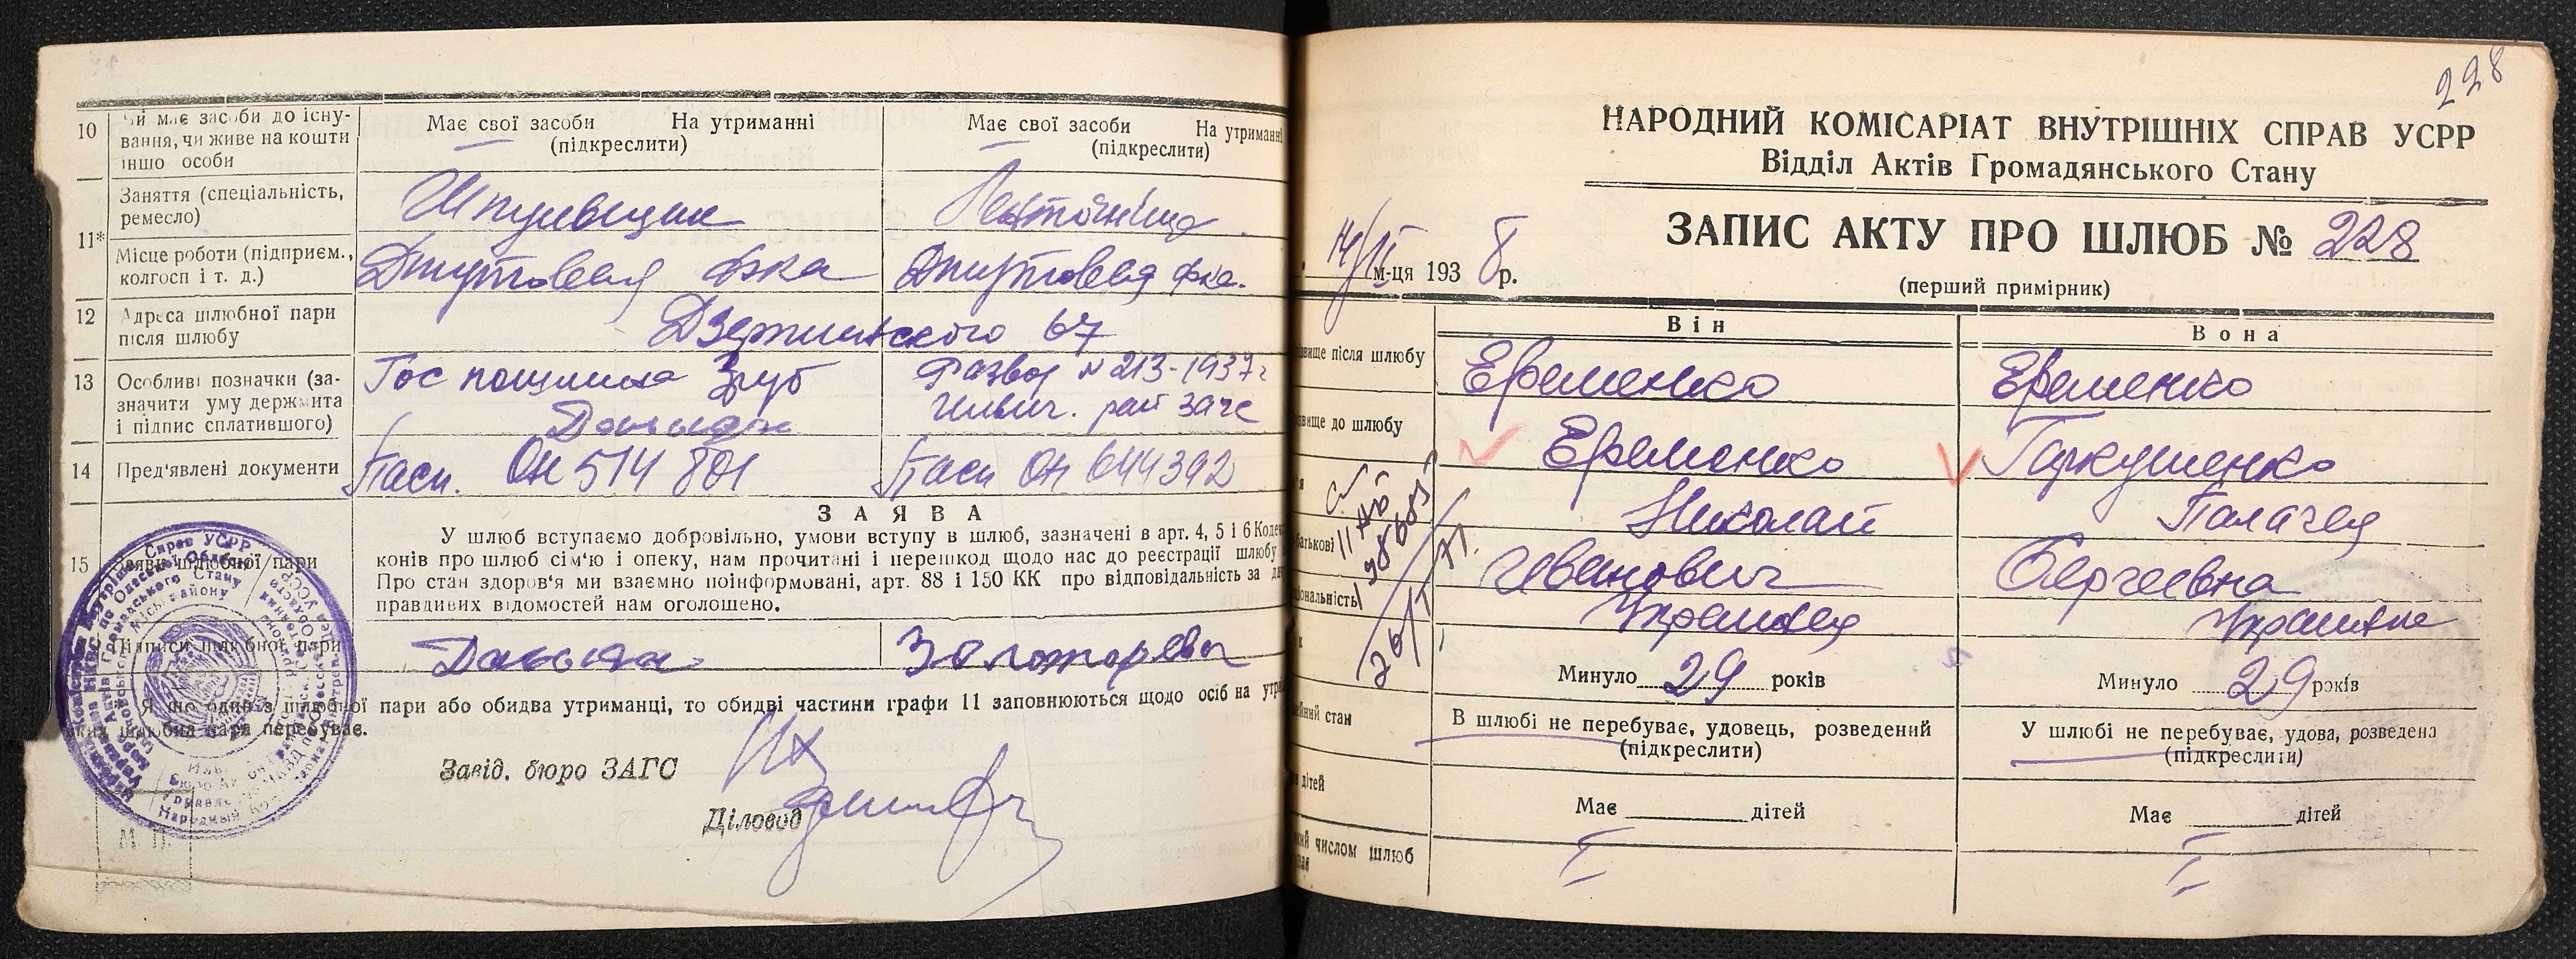 10 чи має засоби до існу-
вання, чи живе на кошти
іншої особи
Має свої засоби На утриманні
(підкреслити)
Має свої засоби На утриманні
(підкреслити)
11*
Заняття (спеціальність,
ремесло)
Шпулевщик
Ленточница
Місце роботи (підприєм.,
колгосп і т. д.)
Джутовая фка
Джутовая фка.
12 Адреса шлюбної пари
після шлюбу
Дзержинского 67
13 Особливі позначки (за-
значити суму держмита
і підпис сплатившого)
Гос пошлина 3 руб
Развод № 213-1937 г
Ильич. рай загс
14 Пред'явлені документи
Пасп. ОН 514 801
Пасп ОН 644392
ЗАЯВА
15 Заява шлюбної пари
У шлюб вступаємо добровільно, умови вступу в шлюб, зазначені в арт. 4, 5 і 6 Коде
конів про шлюб сім'ю і опеку, нам прочитані і перешкод щодо нас до реєстрації шлюбу
Про стан здоров'я ми взаємно поінформовані, арт. 88 і 150 КК про відповідальність за
правдивих відомостей нам оголошено.
Підписи шлюбної пари
пари або обидва утриманці, то обидві частини графи 11 заповнюються щодо осіб на
яких шлюбна пара перебуває.
Завід. бюро ЗАГС
Діловод
М. П.
228
НАРОДНИЙ КОМІСАРІАТ ВНУТРІШНІХ СПРАВ УСРР
Відділ Актів Громадянського Стану
ЗАПИС АКТУ ПРО ШЛЮБ № 228
(перший примірник)
м-ця 1938 р.
Він
Вона
після шлюбу
Еременко
Еременко
до шлюбу
Еременко
Гаркушенко
Николай
Палагея
батькові
Иванович
Сергеевна
Украинец
Украинка
Минуло 29 років
Минуло 29 років
стан
В шлюбі не перебуває, удовець, розведений
(підкреслити)
У шлюбі не перебуває, удова, розведена
(підкреслити)
дітей
Має дітей
Має дітей
числом шлюб
I
I